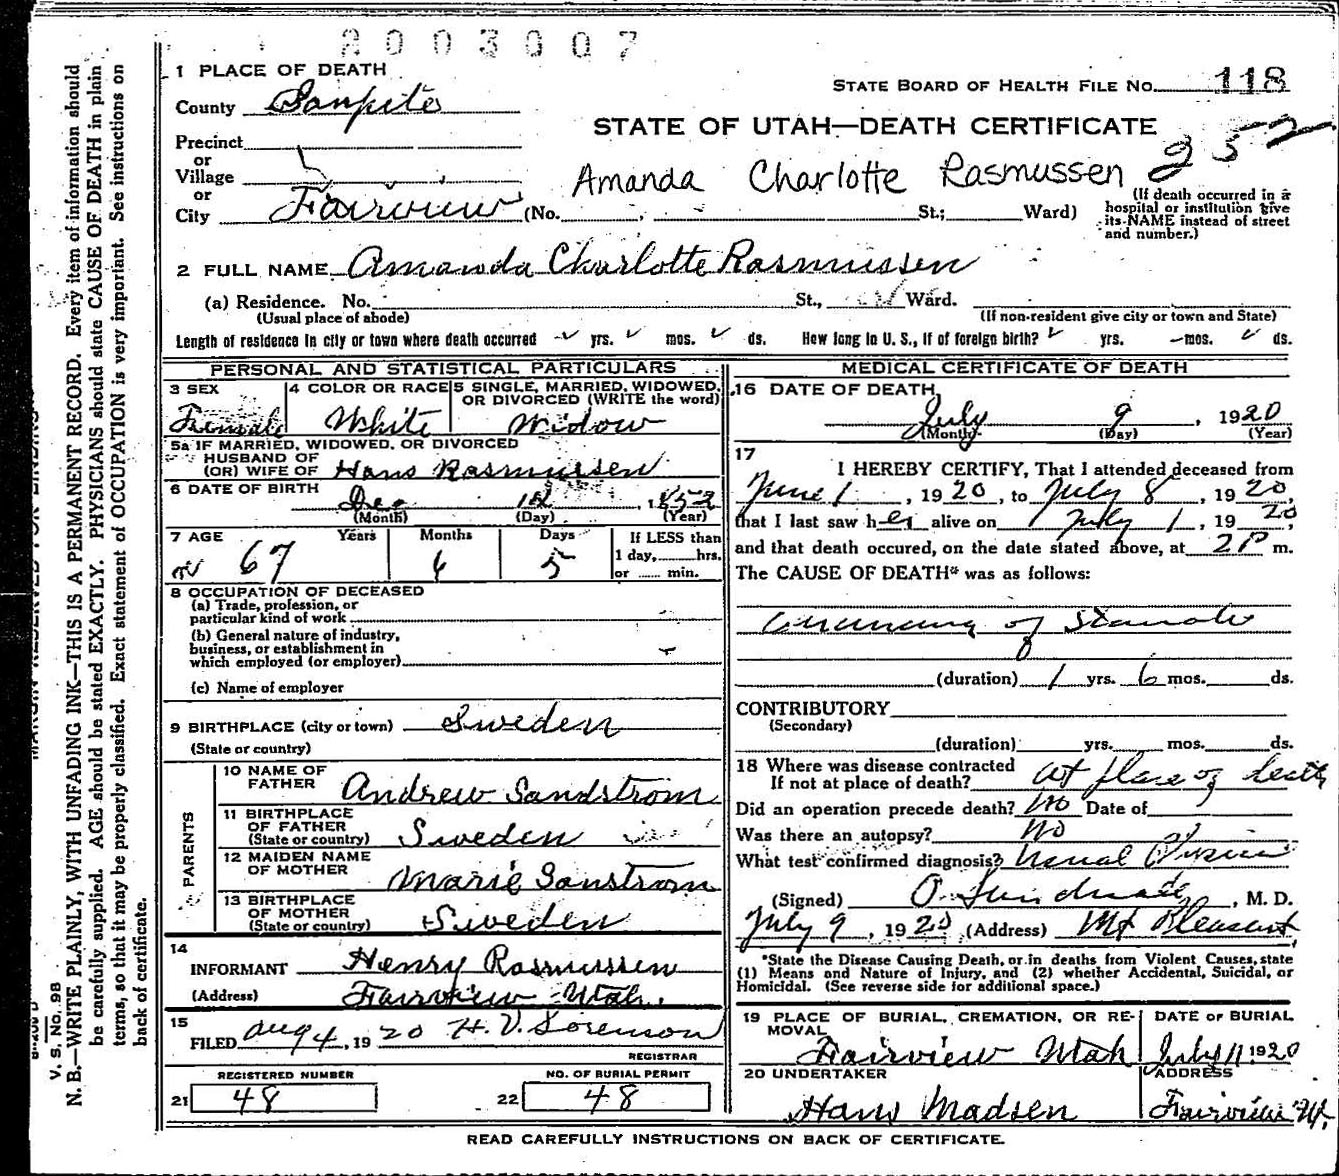 2003007
1 PLACE OF DEATH
STATE BOARD OF HEALTH FILE No. 118
County Sanpete
STATE OF UTAH—DEATH CERTIFICATE
252
Precinct
or
Village
Amanda Charlotte Rasmussen
or
City Fairview (No. St.; Ward)
(If death occurred in a
hospital or institution give
its NAME instead of street
and number.)
2 FULL NAME Amanda Charlotte Rasmussen
(a) Residence. No. St., Ward.
(Usual place of abode) (If non-resident give city or town and State)
Length of residence in city or town where death occurred yrs. mos. ds. How long in U. S., if of foreign birth? yrs. mos. ds.
PERSONAL AND STATISTICAL PARTICULARS
3 SEX
Female
4 COLOR OR RACE
White
5 SINGLE, MARRIED, WIDOWED,
OR DIVORCED (WRITE the word)
Widow
5a IF MARRIED, WIDOWED, OR DIVORCED
HUSBAND OF
(OR) WIFE OF Hans Rasmussen
6 DATE OF BIRTH Dec 1852
(Month) (Day) (Year)
7 AGE Years Months Days If LESS than
1 day, hrs.
or min.
67 6 5
8 OCCUPATION OF DECEASED
(a) Trade, profession, or
particular kind of work
(b) General nature of industry,
business, or establishment in
which employed (or employer)
(c) Name of employer
9 BIRTHPLACE (city or town) Sweden
(State or country)
PARENTS
10 NAME OF
FATHER Andrew Sandstrom
11 BIRTHPLACE
OF FATHER
(State or country) Sweden
12 MAIDEN NAME
OF MOTHER Marie Sanstrom
13 BIRTHPLACE
OF MOTHER
(State or country) Sweden
14
INFORMANT Henry Rasmussen
(Address) Fairview Utah.
15
FILED Aug 4, 1920 H. V. Sorenson
REGISTRAR
REGISTERED NUMBER
21 48
NO. OF BURIAL PERMIT
22 48
MEDICAL CERTIFICATE OF DEATH
16 DATE OF DEATH
July 9, 1920
(Month) (Day) (Year)
17
I HEREBY CERTIFY, That I attended deceased from
June 1, 1920, to July 8, 1920,
that I last saw her alive on July 1, 1920,
and that death occured, on the date stated above, at 2P m.
The CAUSE OF DEATH* was as follows:
of
(duration) 1 yrs. 6 mos. ds.
CONTRIBUTORY
(Secondary)
(duration) yrs. mos. ds.
18 Where was disease contracted
If not at place of death? at place of death
Did an operation precede death? No Date of
Was there an autopsy? No
What test confirmed diagnosis? Usual
(Signed) , M. D.
July 9, 1920 (Address) Mt Pleasant
*State the Disease Causing Death, or in deaths from Violent Causes, state
(1) Means and Nature of Injury, and (2) whether Accidental, Suicidal, or
Homicidal. (See reverse side for additional space.)
19 PLACE OF BURIAL, CREMATION, OR RE-
MOVAL
Fairview Utah
DATE OF BURIAL
July 11 1920
20 UNDERTAKER
Hans Madsen
ADDRESS
Fairview Ut.
READ CAREFULLY INSTRUCTIONS ON BACK OF CERTIFICATE.
V. S. No. 98
N. B.—WRITE PLAINLY, WITH UNFADING INK—THIS IS A PERMANENT RECORD. Every item of information should
be carefully supplied. AGE should be stated EXACTLY. PHYSICIANS should state CAUSE OF DEATH in plain
terms, so that it may be properly classified. Exact statement of OCCUPATION is very important. See instructions on
back of certificate.